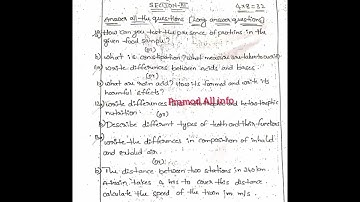 SECTION-III 4x8=32
Answer all the questions (Long answer questions)
How can you test the presence of proteins in the
given food sample?
(or)
b) What is constipation? What measures are taken to avoid
write differences between acids and bases.
(or)
b) what are rain acid? How its formed and write its
harmful effects?
write differences
Pramod All info
nutrition.
(or)
b) Describe different types of teeth and their functions
write the differences in composition of inhaled
and exhaled air.
(or)
b) The distance between two stations in 240km.
A train takes 4 hrs to cover this distance.
calculate the speed of the train in m/s.